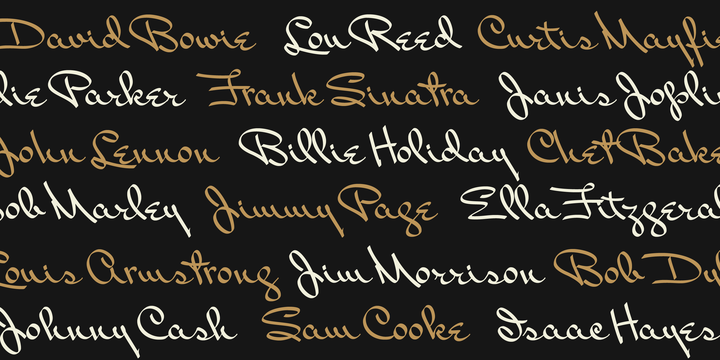 David Bowie Lou Reed Curtis Mayfie
lie Parker Frank Sinatra Janis Joplin
John Lennon Billie Holiday Chet Bake
Bob Marley Jimmy Page Ella Fitzgeral
Louis Armstrong Jim Morrison Bob Dyl
Johnny Cash Sam Cooke Isaac Hayes